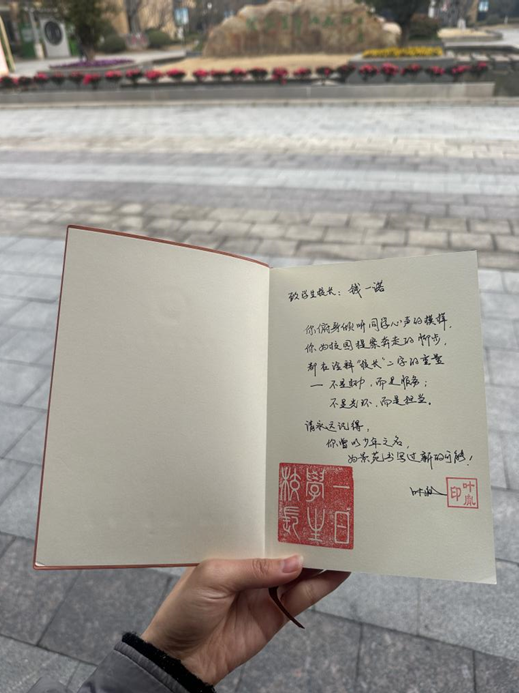 致学生校长：钱一诺
你俯身倾听同学心声的模样，
你为校园提案奔走的脚步，
都在诠释“校长”二字的重量
— 不是财力，而是服务；
不是光环，而是担当。
请永远记得，
你曾以少年之名，
为景苑书写过新的可能！
叶胤
叶胤印
一日學生校長